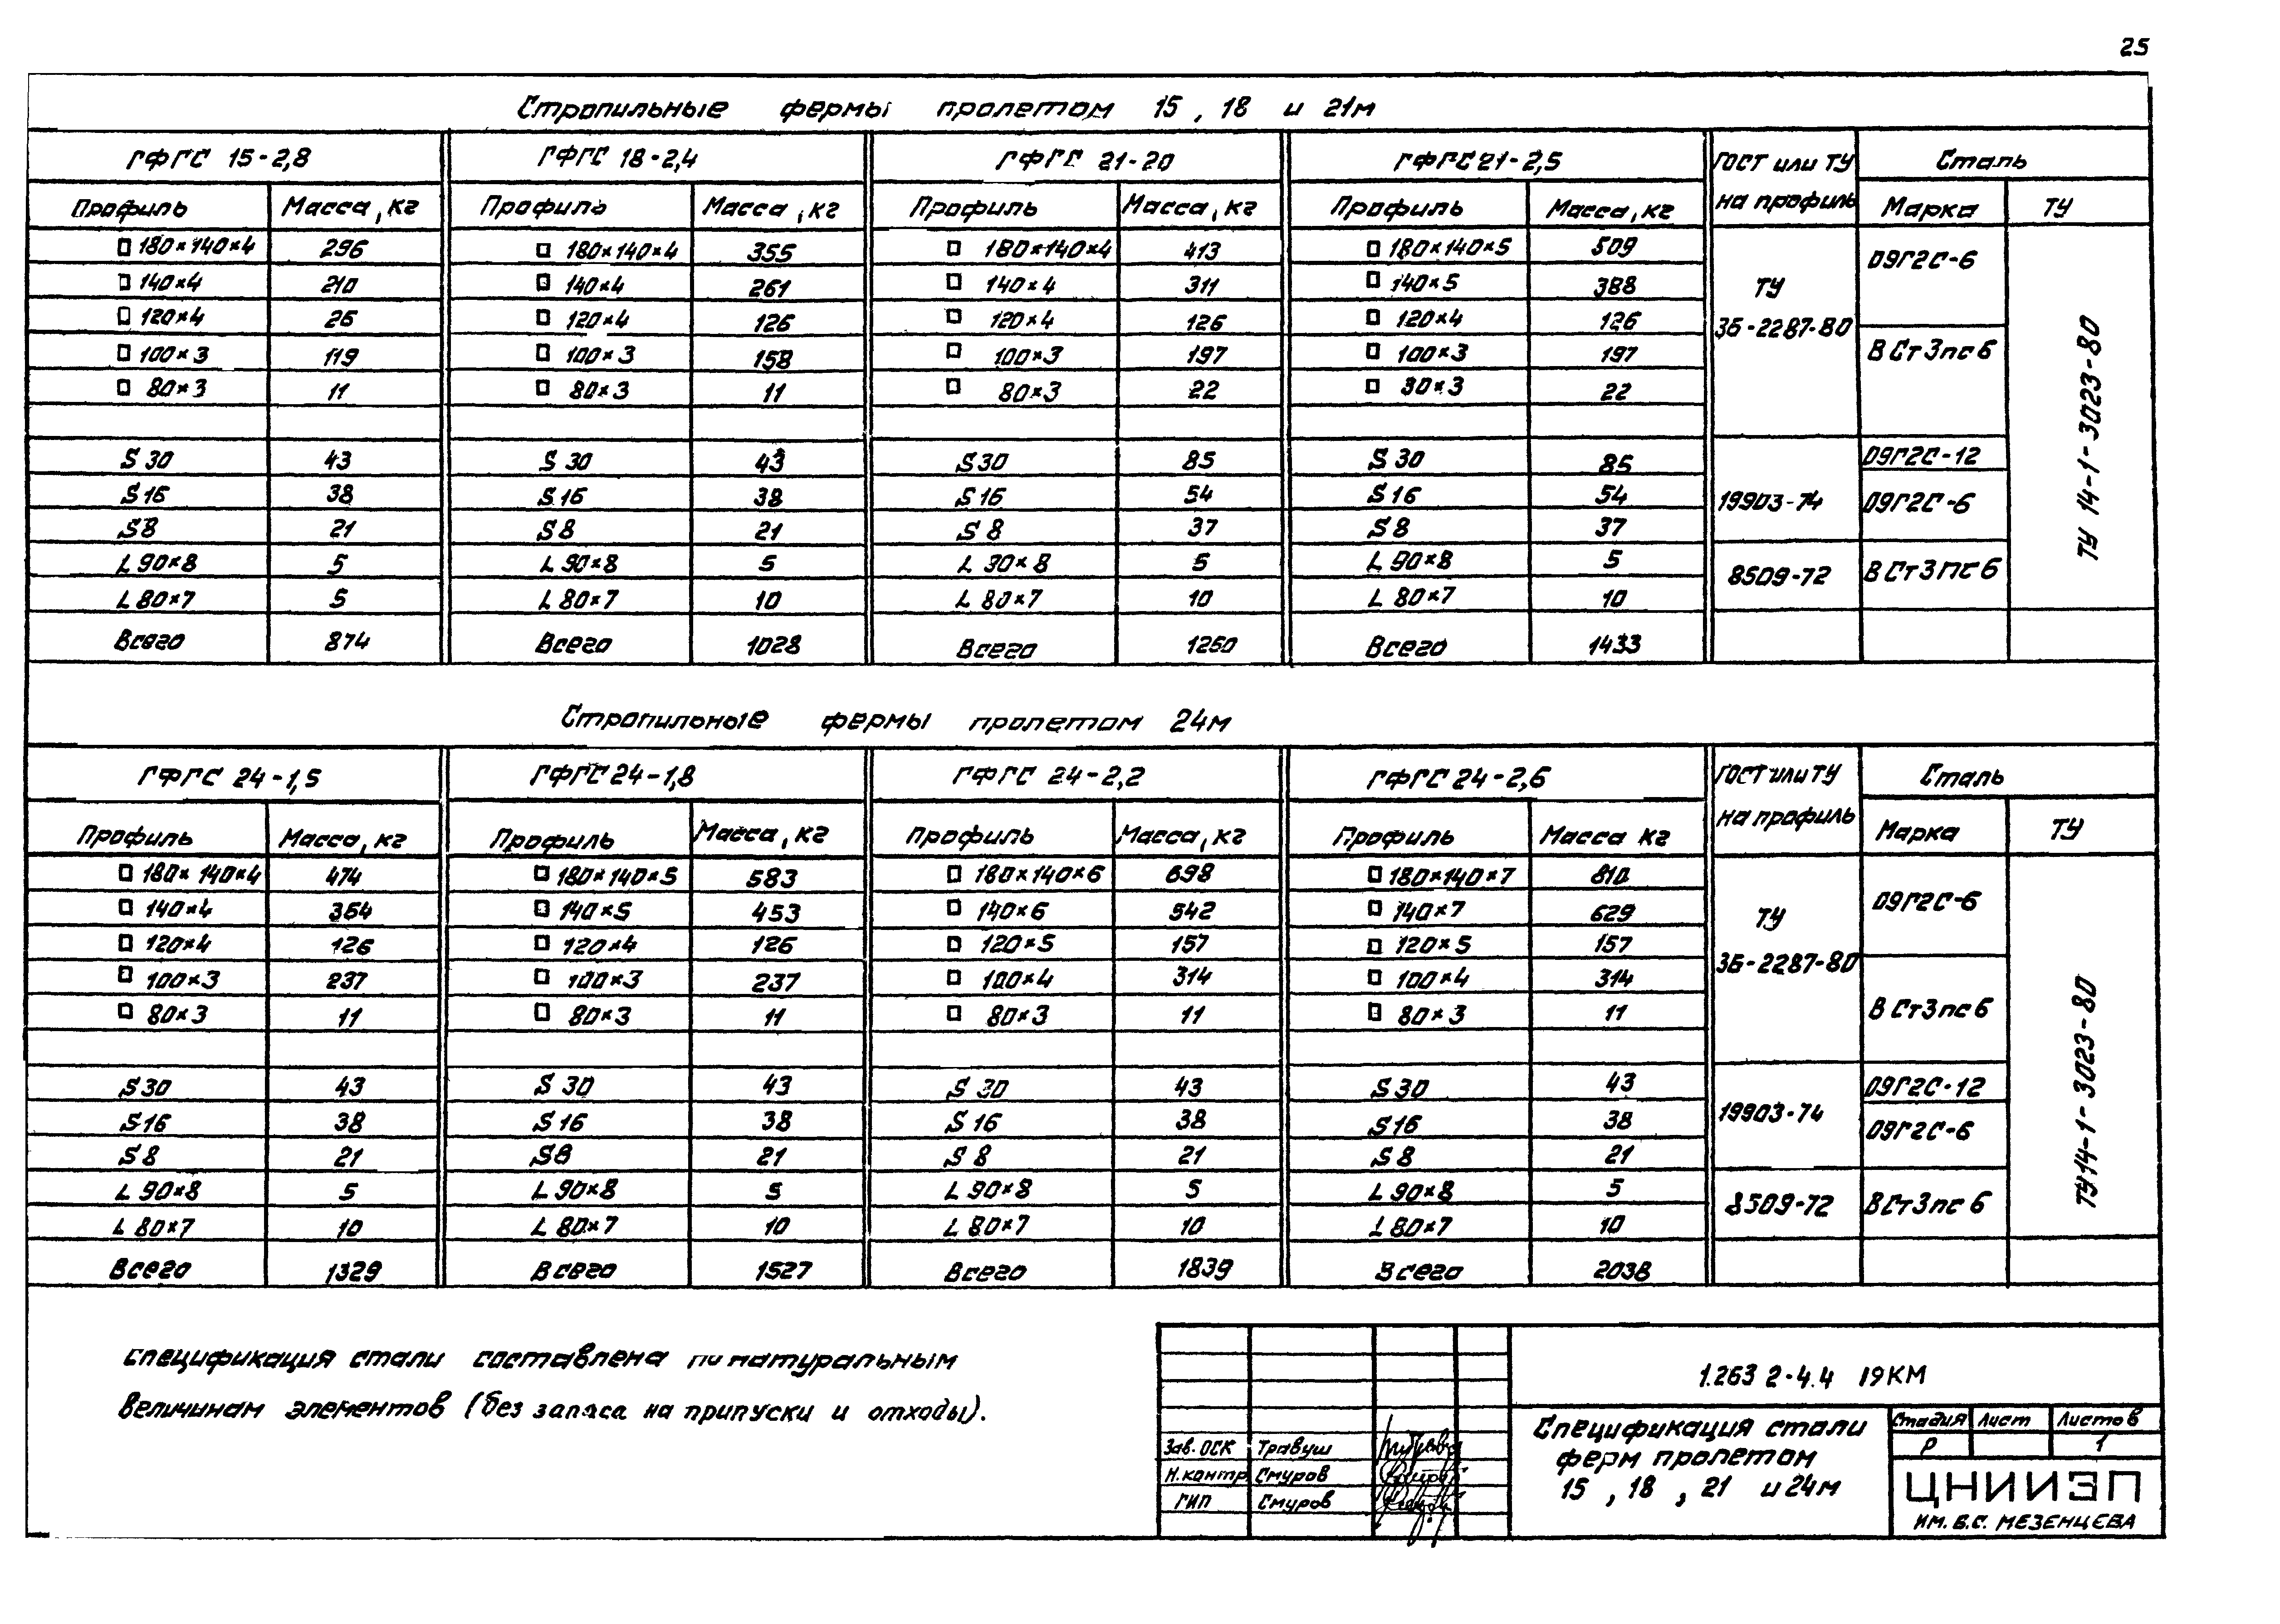 25
Стропильные фермы пролетом 15, 18 и 21м
ГФГС 15-2,8 ГФГС 18-2,4 ГФГС 21-20 ГФГС 21-2,5 ГОСТ или ТУ на профиль Сталь
Профиль Масса, кг Профиль Масса, кг Профиль Масса, кг Профиль Масса, кг Марка ТУ
□ 180×140×4 296 □ 180×140×4 355 □ 180×140×4 413 □ 180×140×5 509
□ 140×4 210 □ 140×4 261 □ 140×4 311 □ 140×5 388
□ 120×4 26 □ 120×4 126 □ 120×4 126 □ 120×4 126
□ 100×3 119 □ 100×3 158 □ 100×3 197 □ 100×3 197
□ 80×3 11 □ 80×3 11 □ 80×3 22 □ 30×3 22
ТУ
36-2287-80
09Г2С-6
ВСт3пс6
S30 43 S30 43 S30 85 S30 85 09Г2С-12
S16 38 S16 38 S16 54 S16 54 19903-74 09Г2С-6
S8 21 S8 21 S8 37 S8 37
L 90×8 5 L 90×8 5 L 90×8 5 L 90×8 5 8509-72 ВСт3пс6
L 80×7 5 L 80×7 10 L 80×7 10 L 80×7 10
ТУ 14-1-3023-80
Всего 874 Всего 1028 Всего 1260 Всего 1433
Стропильные фермы пролетом 24м
ГФГС 24-1,5 ГФГС 24-1,8 ГФГС 24-2,2 ГФГС 24-2,6 ГОСТ или ТУ на профиль Сталь
Профиль Масса, кг Профиль Масса, кг Профиль Масса, кг Профиль Масса кг Марка ТУ
□ 180×140×4 474 □ 180×140×5 583 □ 180×140×6 698 □ 180×140×7 810
□ 140×4 364 □ 140×5 453 □ 140×6 542 □ 140×7 629
□ 120×4 126 □ 120×4 126 □ 120×5 157 □ 120×5 157
□ 100×3 237 □ 100×3 237 □ 100×4 314 □ 100×4 314
□ 80×3 11 □ 80×3 11 □ 80×3 11 □ 80×3 11
ТУ
36-2287-80
09Г2С-6
ВСт3пс6
S30 43 S30 43 S30 43 S30 43 09Г2С-12
S16 38 S16 38 S16 38 S16 38 19903-74 09Г2С-6
S8 21 S8 21 S8 21 S8 21
L 90×8 5 L 90×8 5 L 90×8 5 L 90×8 5 8509-72 ВСт3пс6
L 80×7 10 L 80×7 10 L 80×7 10 L 80×7 10
ТУ14-1-3023-80
Всего 1329 Всего 1527 Всего 1839 Всего 2038
Спецификация стали составлена по натуральным
величинам элементов (без запаса на припуски и отходы).
1.263 2-4.4 19КМ
Зав. ОСК Травуш
Н. контр Смуров
ГИП Смуров
Спецификация стали
ферм пролетом
15, 18, 21 и 24м
Стадия Лист Листов
Р 1
ЦНИИЭП
ИМ. Б.С. МЕЗЕНЦЕВА